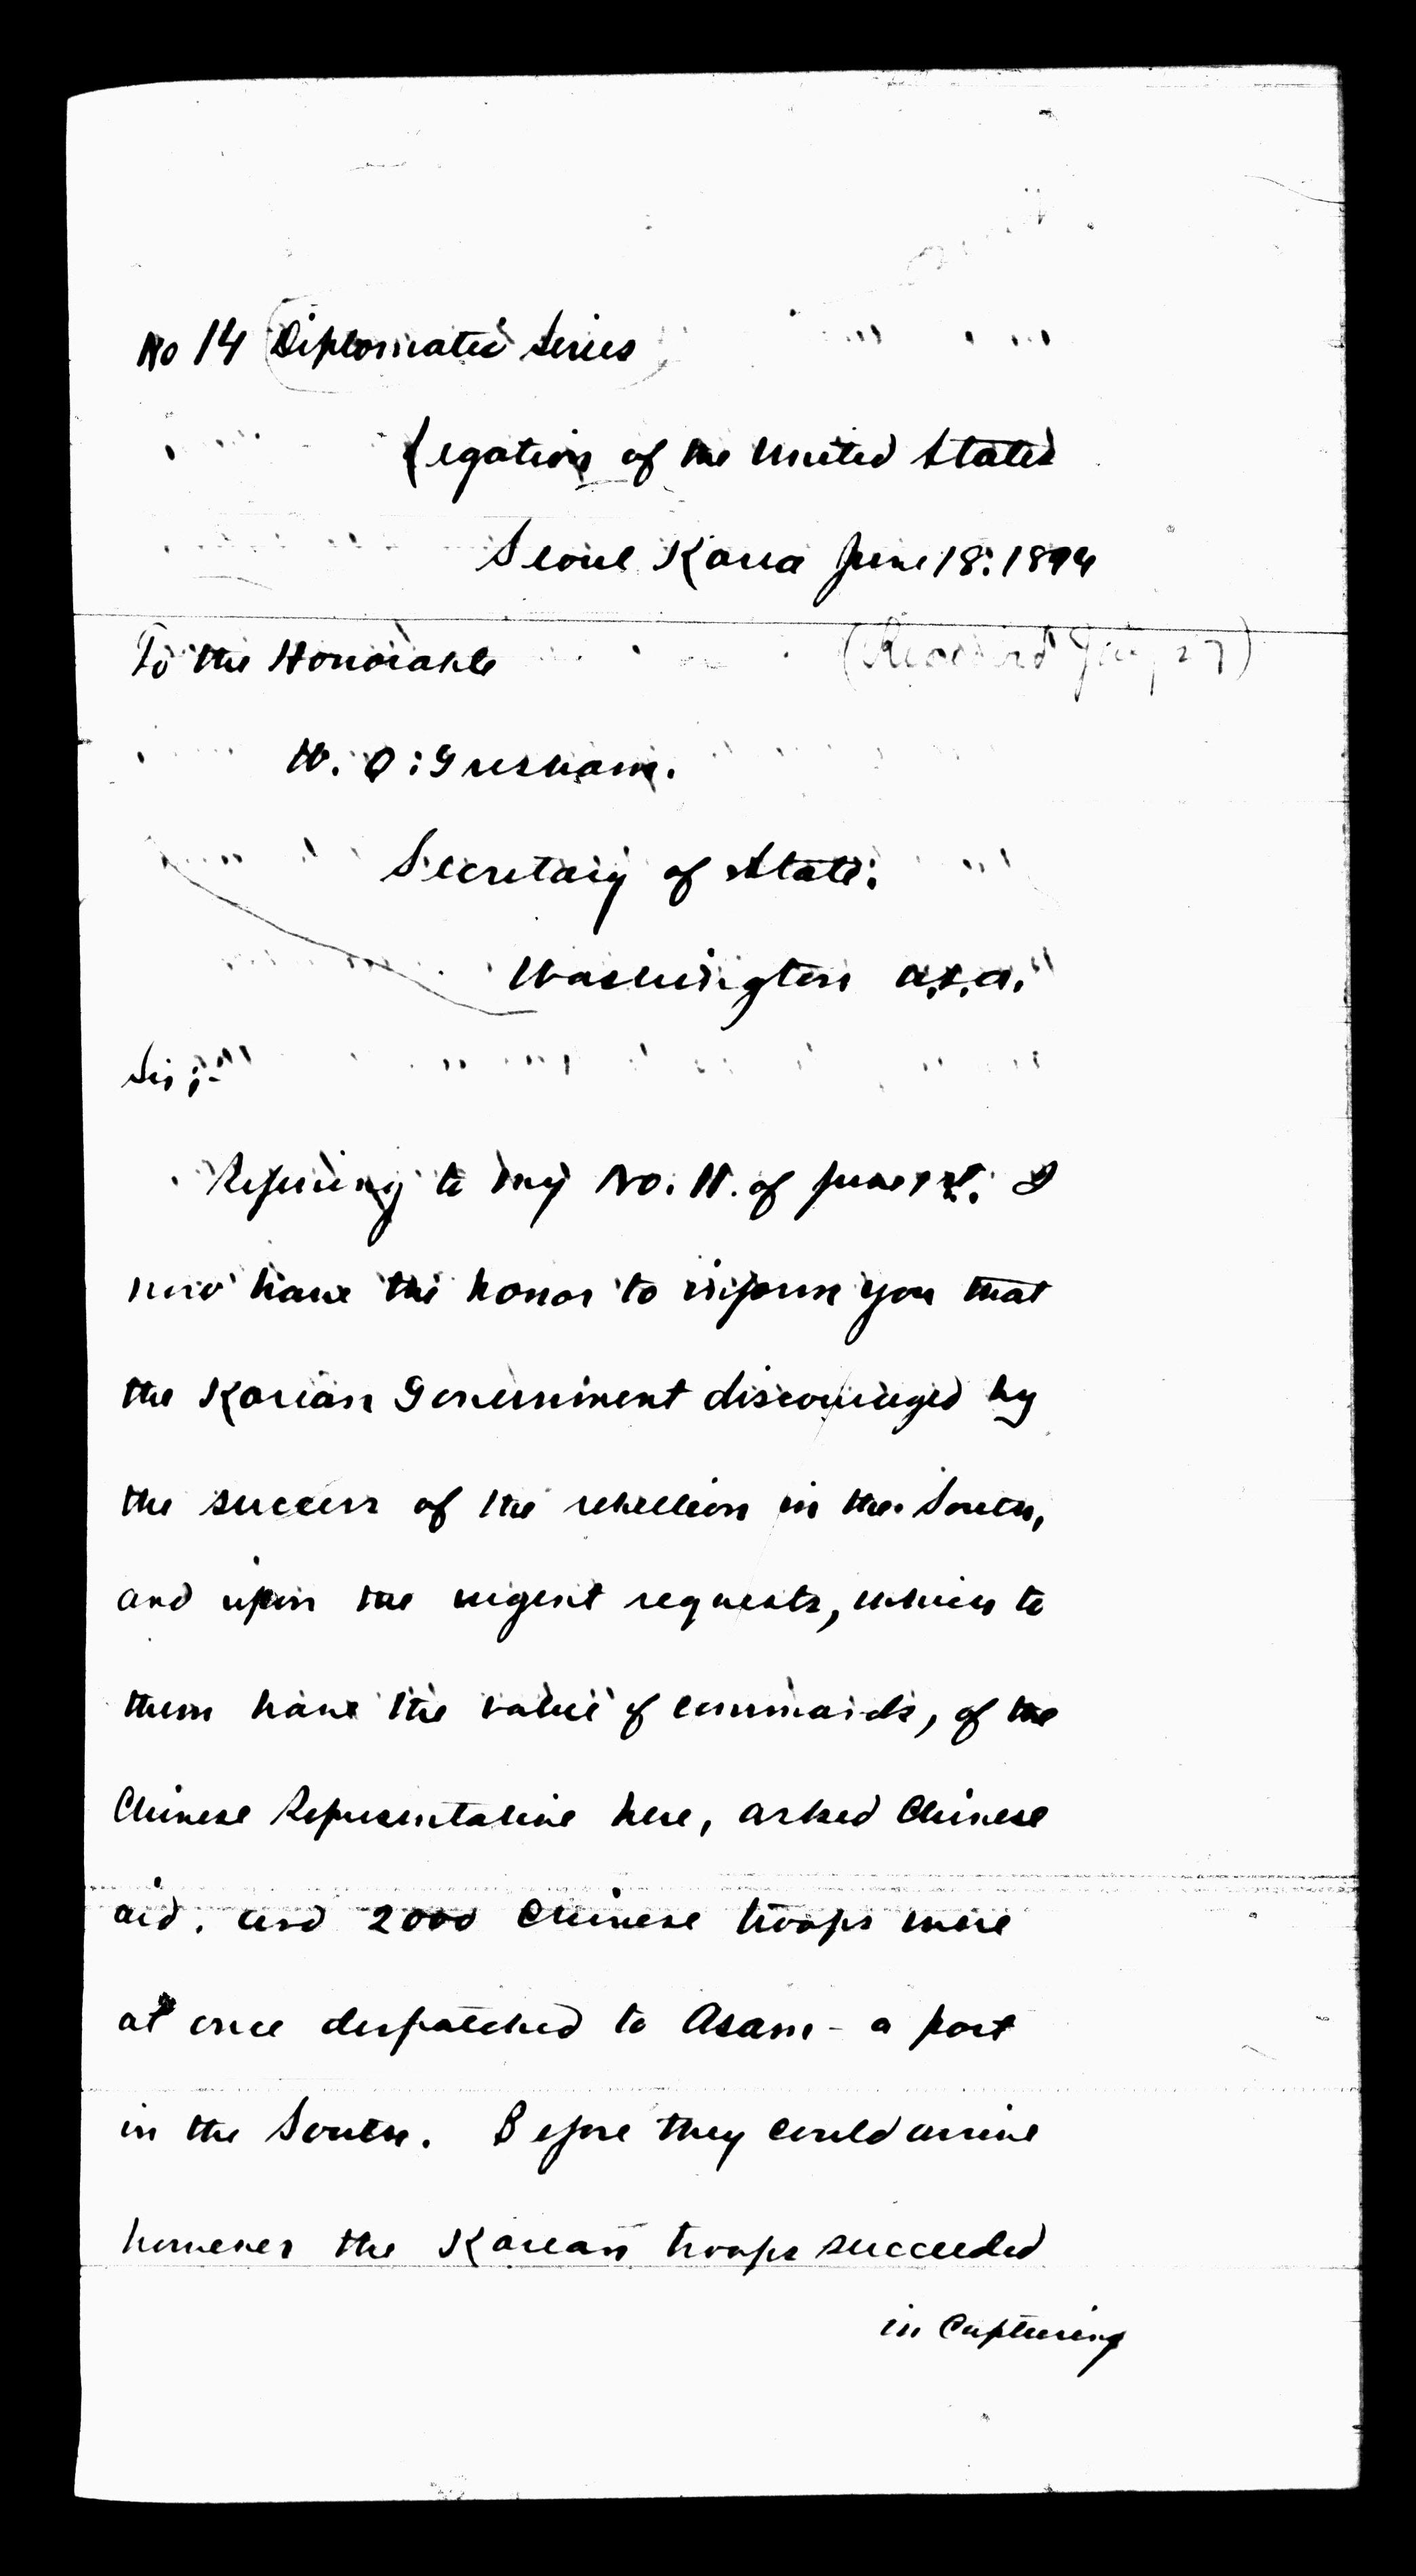 No 14 Diplomatic Series
Legation of the United States
Seoul Korea June 18: 1894
To the Honorable
(Received July 27)
W. Q: Gresham.
Secretary of State:
Washington U.S.A.
Sir;-
Referring to my No. 11. of June 1st. I
now have the honor to inform you that
the Korean Government discouraged by
the success of the rebellion in the South,
and upon the urgent requests, which to
them have the value of commands, of the
Chinese Representative here, asked Chinese
aid. and 2000 Chinese troops were
at once despatched to Asam - a port
in the South. Before they could arrive
however the Korean troops succeeded
in Capturing